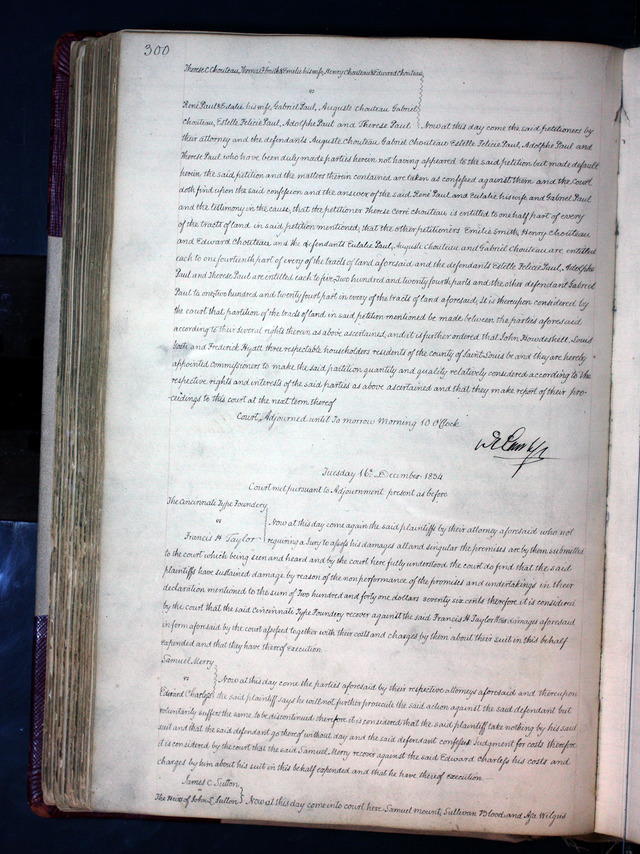 300
Therese C Chouteau, Thomas F Smith & Emilie his wife, Henry Chouteau & Edward Chouteau,
vs
René Paul & Eulalie his wife, Gabriel Paul, Auguste Chouteau Gabriel
Chouteau, Estelle Felicie Paul, Adolphe Paul and Therese Paul Now at this day come the said petitioners by
their attorney and the defendants Auguste Chouteau Gabriel Chouteau Estelle Felicie Paul, Adolphe Paul and
Therese Paul who have been duly made parties herein not having appeared to the said petition but made default
herein the said petition and the matters therein contained are taken as confessed against them and the Court
doth find upon the said confession and the answer of the said René Paul and Eulalie his wife and Gabriel Paul
and the testimony in the cause, that the petitioner Therese Cerré Chouteau is entitled to one half part of every
of the tracts of land in said petition mentioned, that the other petitioners Emilie Smith, Henry Chouteau
and Edward Chouteau, and the defendants Eulalie Paul, Auguste Chouteau and Gabriel Chouteau are entitled
each to one fourteenth part of every of the tracts of land aforesaid and the defendants Estelle Felicie Paul, Adolphe
Paul and Therese Paul are entitled each to five, Two hundred and twenty fourth parts and the other defendant Gabriel
Paul to one, two hundred and twenty fourth part in every of the tracts of land aforesaid; It is thereupon considered by
the court that partition of the tracts of land in said petition mentioned be made between the parties aforesaid
according to their several rights therein as above ascertained, and it is further ordered that John Howdeshell, Louis
and Frederick Hyatt three respectable householders residents of the county of Saint Louis be and they are hereby
appointed Commissioner to make the said partition quantity and quality relatively considered according to the
respective rights and interests of the said parties as above ascertained and that they make report of their pro-
ceedings to this court at the next term thereof
Court Adjourned until To morrow Morning 10 O'Clock
Tuesday 16th December 1834
Court met pursuant to Adjournment present as before
The Cincinnati Type Foundery
vs
Francis H Taylor Now at this day come again the said plaintiffs by their attorney aforesaid who not
requiring a Jury to assess his damages all and singular the premises are by them submitted
to the court which being seen and heard and by the court here fully understood the court do find that the said
plaintiffs have sustained damage by reason of the non performance of the promises and undertakings in their
declaration mentioned to the sum of Two hundred and forty one dollars seventy six cents therefore it is considered
by the court that the said Cincinnati Type Foundery recover against the said Francis H Taylor their damages aforesaid
in form aforesaid by the court assessed together with their costs and charges by them about their suit in this behalf
expended and that they have thereof execution
Samuel Merry
vs
Edward Charless Now at this day come the parties aforesaid by their respective attorneys aforesaid and thereupon
the said plaintiff says he will not further prosecute the said action against the said defendant but
voluntarily suffers the same to be discontinued therefore it is considered that the said plaintiff take nothing by his said
suit and that the said defendant go thereof without day and the said defendant confesses Judgment for costs therefore
it is considered by the court that the said Samuel Merry recover against the said Edward Charless his costs and
charges by him about his suit in this behalf expended and that he have thereof execution
James C Sutton
vs
The Heirs of John L Sutton Now at this day come into court here Samuel Mount, Sullivan Blood, and Asa Wilgus